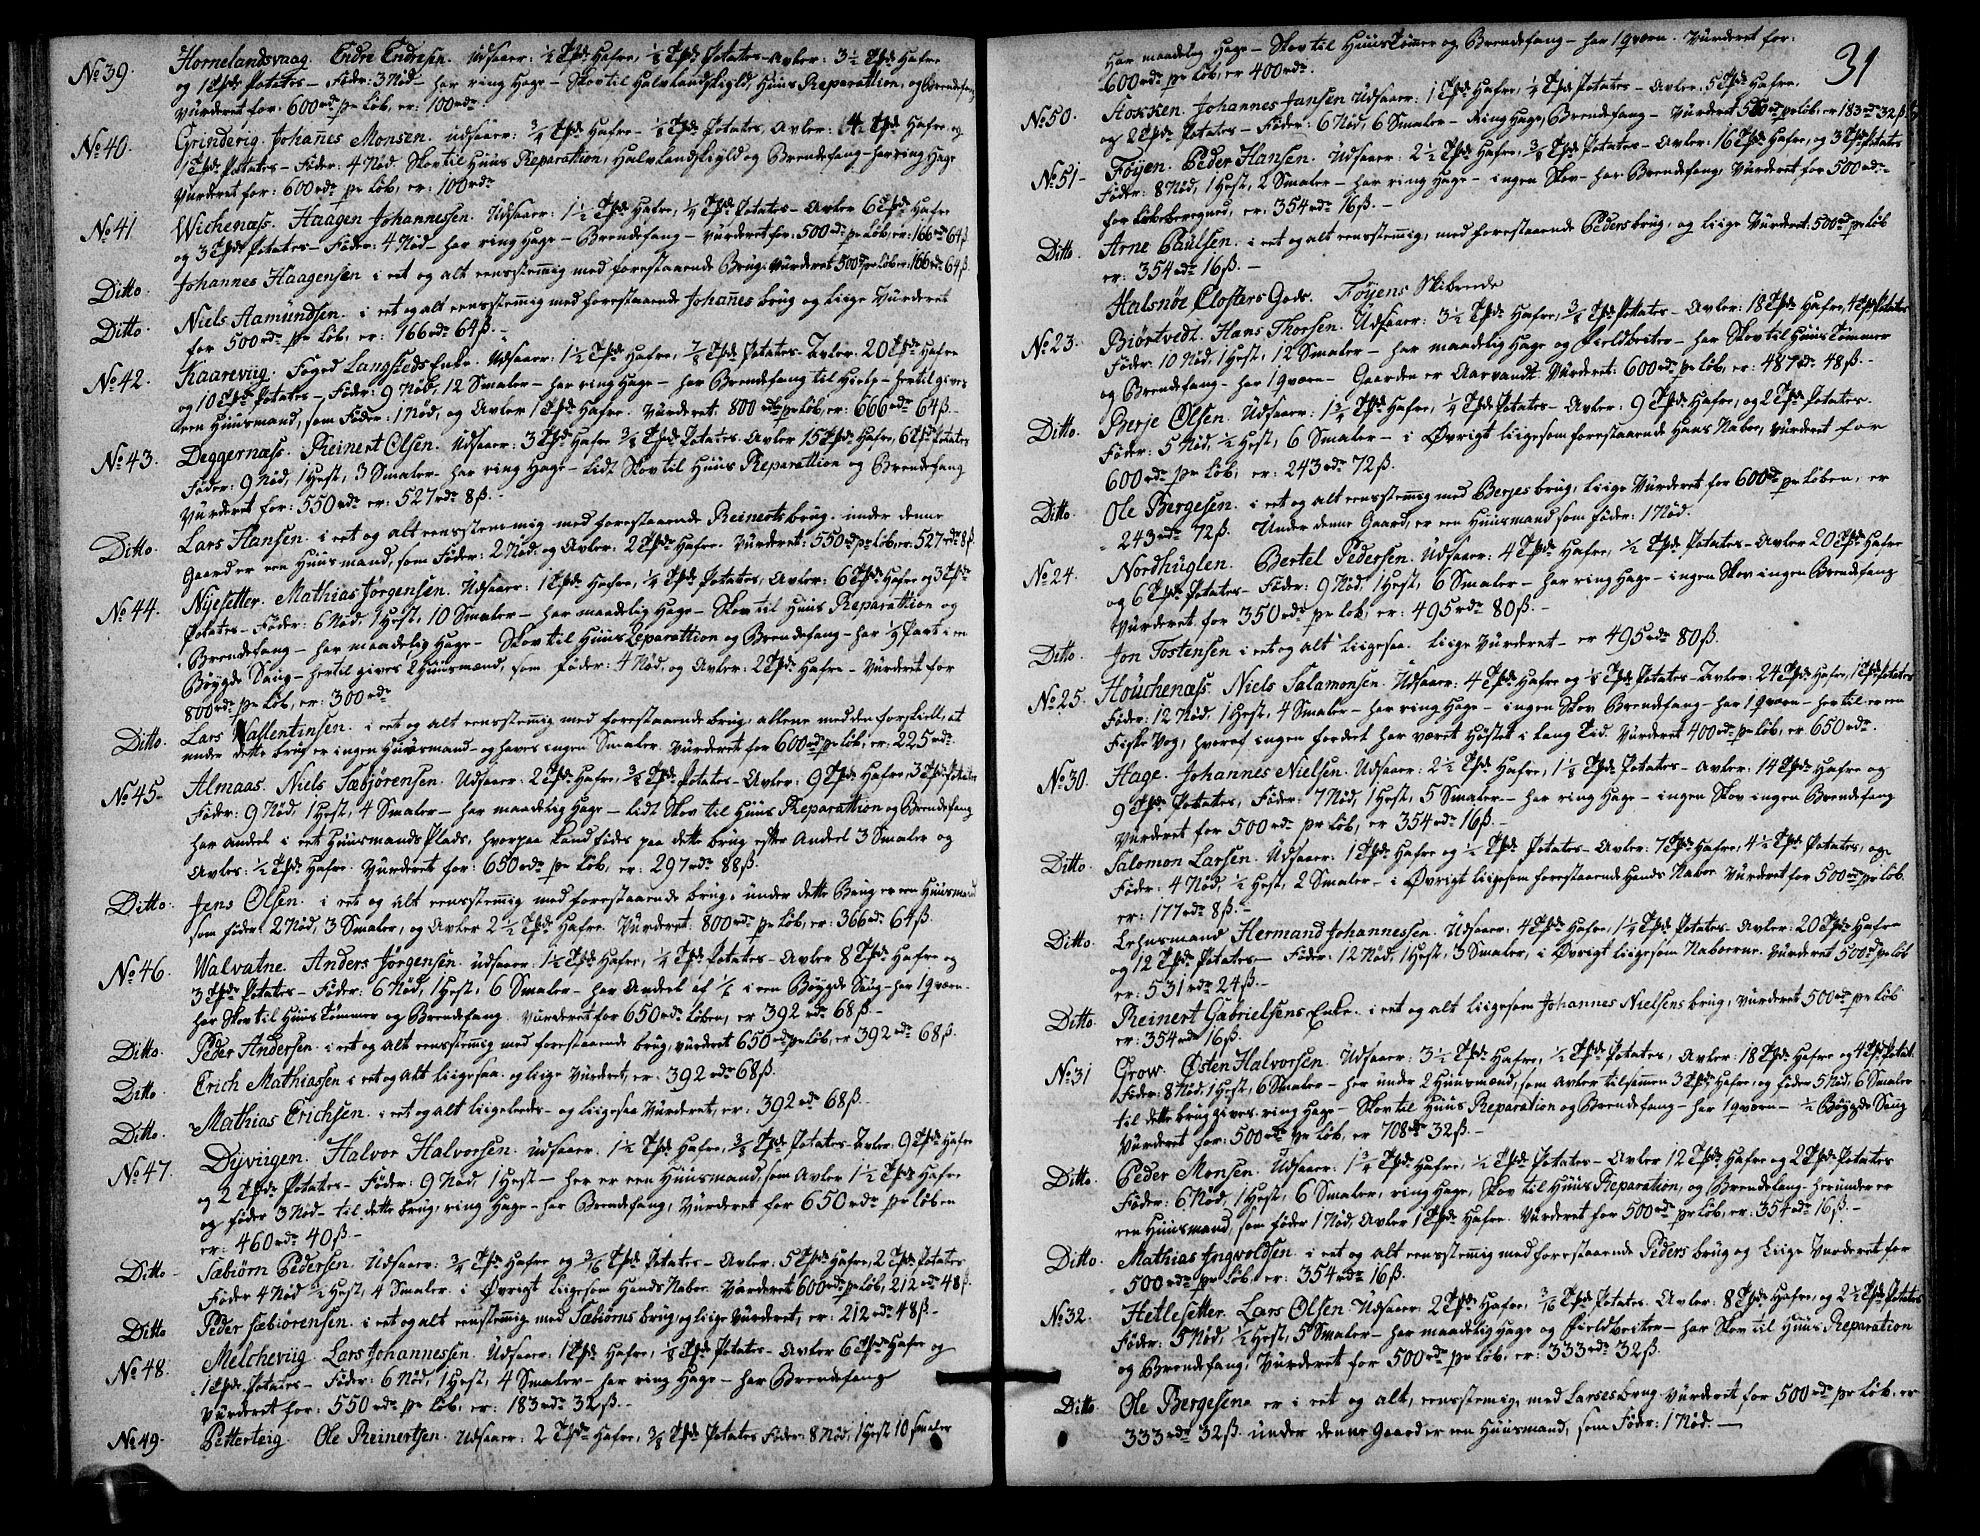 No 39. Hornelandsvaag. Endre Endresen. Udsaaer: 1/2 Tpd: Hafre, 1/8 Tpd: Potates – Avler: 3 1/2 Tpd: Hafre
og 1 Tpd: Potates – Føder: 3 Nød – har ring Hage – Skov til Huus Reparattion, og Brendefang
Vurderet for: 600 rdr pr Løb, er: 100 rdr
No 40. Grindevig. Johanes Monsen. Udsaaer: 3/4 Tpd: Hafre – 1/8 Tpd: Potates, Avler: Tpd Hafre og
1 Tpd: Potates – Føder: 4 Nød. Skov til Huus Reparattion, og Brendefang – har ring Hage
Vurderet for: 600 rdr pr Løb, er: 100 rdr
No 41 Wichenæss. Haagen Johannessen. Udsaaer: 1 1/2 Tpd: Hafre, 1/4 Tpd: Potates – Avler 6 Tpd: Hafre
og 3 Tpd: Potates – Føder: 4 Nød – har ring Hage – Brendefang – Vurderet for: 500 rdr pr Løb, er: 166 rdr 64 ß.
Ditto. Johannes Haagensen i eet og alt eensstemig med forestaaende Brug. Vurderet 500 rdr pr Løb er: 166 rdr 64 ß.
Ditto. Niels Aamundsen. i eet og alt eensstemig med forestaaende Johanes brug og liige Vurderet
for 500 rdr pr Løb, er: 166 rdr 64 ß. –
No 42. Kaarevug. Foged Langsteds Enke. Udsaaer: 1 1/2 Tpd: Hafre, 7/8 Tpd: Potates – Avler: 20 Tpd: Hafre
og 10 Tpd: Potates – Føder: 9 Nød, 12 Smaler – har ring Hage – har Brendefang til Hielp – hertil gives
een Huusmand, som Føder: 1 Nød, og Avler 1 Tpd: Hafre. Vurderet: 800 rdr pr Løb, er: 666 rdr 64 ß. –
No 43. Deggernæss. Reinert Olsen. Udsaaer: 3 Tpd: Hafre 3/8 Tpd: Potates. Avler 15 Tpd: Hafre, 6 Tpd Potates
Føder: 9 Nød, 1 Hest, 3 Smaler – har ring Hage – lidt Skov til Huus Reparattion og Brendefang
Vurderet for: 550 rdr er: 527 rdr 8 ß. –
Ditto. Lars Hansen. i eet og alt eensstemmig med forestaaende Reinerts brug. under denne
Gaard er een Huusmand, som Føder: 2 Nød og Avler: 2 Tpd: Hafre. Vurderet: 550 rdr pr Løb, er: 527 rdr 8 ß
No 44. Nyesetter. Mathias Jørgensen. Udsaaer: 1 Tpd: Hafre, 1/4 Tpd: Potates, Avler: 6 Tpd: Hafre og 3 Tpd:
Potates – Føder: 6 Nød, 1 Hest, 10 Smaler – har maadelig Hage – Skov til Huus Reparattion og
Brendefang – har maadelig Hage – Skov til Huus Reparattion og Brendefang – har Part i en
Bøygde Saug – hertil gives 2 Huusmænd, som føder: 4 Nød, og Avler: 2 Tpd: Hafre – Vurderet for
800 rdr pr Løb, er: 300 rdr
Ditto. Lars Vallentinsen. i eet og alt eensstemig med forestaaende brug, allene med den forskiell, at
under dette brug er ingen Huusmand – og haves ingen Smaler. Vurderet for 600 rdr pr Løb, er: 225 rdr
No 45 – Almaas. Niels Sæbjørensen. Udsaaer: 2 Tpd: Hafre, 3/8 Tpd: Potates – Avler: 9 Tpd: Hafre, 3 Tpd: Potates
Føder: 9 Nød, 1 Hest, 4 Smaler – har maadelig Hage – lidt Skov til Huus Reparattion og Brendefang
har andeel i eet Huusmands Plads, hvorpaa kand fødes paa dette brug efter Andeel 3 Smaler og
Avles: 1/2 Tpd: Hafre. Vurderet for: 650 rdr pr Løb, er: 297 rdr 88 ß.
Ditto. Jens Olsen. i eet og alt eensstemig med forestaaende brug, under dette Brug er een Huusmand
som føder 2 Nød, 3 Smaler, og Avler 2 1/2 Tpd: Hafre. Vurderet: 800 rdr pr Løb, er: 366 rdr 64 ß.
No 46. Walvatne. Anders Jørgensen. Udsaaer: 1 1/2 Tpd: Hafre, 1/4 Tpd: Potates – Avler 8 Tpd: Hafre og
3 Tpd: Potates – Føder: 6 Nød, 1 Hest, 6 Smaler – har Andeel af i een Bøygde Saug – har 1 qværn.
har Skov til Huus Tømmer og Brendefang. Vurderet for 650 rdr Løben, er 392 rdr 68 ß. –
Ditto. Peder Andersen. i eet og alt eensstemig med forestaaende brug, vurderet 650 rdr pr Løb, er 392 rdr 68 ß.
Ditto. Erich Mathiassen i eet og alt liigesaa. og liige Vurderet, er: 392 rdr 68 ß.
Ditto. Mathias Erichsen. i eet og alt liigeledes – og liigesaa Vurderet, er: 392 rdr 68 ß. –
No 47. Dyvugen. Halvor Halvorsen. Udsaaer: 1 1/2 Tpd: Hafre, 3/8 Tpd: Potates – Avler: 9 Tpd: Hafre
og 2 Tpd: Potates – Føder: 9 Nød, 1 Hest – her er een Huusmand, som Avler 1 1/2 Tpd: Hafre
og føder 3 Nød – til dette brug, ring Hage – har Brendefang, Vurderet for 650 rdr pr Løben
er: 460 rdr 40 ß. –
Ditto – Sæbiørn Pedersen. Udsaaer: 3/4 Tpd: Hafre og 3/16 Tpd: Potates – Avler: 5 Tpd: Hafre, 2 Tpd: Potates
Føder 4 Nød 1/2 Hest, 4 Smaler. i Øvrigt liigesom Hands Nabo. Vurderet 600 rdr pr Løb, 212 rdr 48 ß.
Ditto Peder Sæbiørensen. i eet og alt eensstemig med Sæbiørns brug, og liige Vurderet, er: 212 rdr 48 ß –
No 48. Melchevug. Lars Johannessen. Udsaaer: 1 Tpd: Hafre, 1/8 Tpd: Potates – Avler 6 Tpd: Hafre og
1 Tpd: Potates – Føder: 6 Nød, 1 Hest, 4 Smaler – har ring Hage – har Brendefang
Vurderet for: 550 rdr pr Løb, er: 183 rdr 32 ß. –
No 49. Petterteig. Ole Reinertsen. Udsaaer: 2 Tpd: Hafre, 3/8 Tpd: Potates Føder: 8 Nød, 1 Hest 10 Smaler
31
Har maadelig Hage – Skov til Huus Tømer og Brendefang – har 1 qværn. Vurderet for:
600 rdr pr Løb, er 400 rdr.
No 50. Aokken. Johannes Jansen Udsaaer: 1 Tpd: Hafre, 1/4 Tpd Potates – Avler: 5 Tpd: Hafre,
og 2 Tpd: Potates – Føder: 6 Nød, 6 Smaler – Ring Hage, Brendefang – Vurderet 550 rdr pr Løb, er 183 rdr 32 ß.
No 51 – Føyen. Peder Hansen. Udsaaer: 2 1/2 Tpd: Hafre, 3/8 Tpd: Potates – Avler: 16 Tpd: Hafre, og 3 Tpd: Potates
Føder: 8 Nød, 1 Hest, 2 Smaler – har ring Hage – ingen Skov – har Brendefang, Vurderet for 500 rdr –
for Løbs beregned, er: 354 rdr 16 ß. –
Ditto. Arne Paulsen. i eet og alt eensstemig, med forestaaende Peders brug, og liige Vurderet: 500 rdr pr Løb
er: 354 rdr 16 ß. –
Halsnøe Closters Gods. Føyens Skibrede
No 23. Biørtvedt. Hans Thorsen. Udsaaer: 3 1/2 Tpd: Hafre, 3/8 Tpd: Potates – Avler: 18 Tpd: Hafre, 4 Tpd: Potates
Føder 10 Nød, 1 Hest, 12 Smaler – har maadelig Hage og Fieldbeiter – har Skov til Huus Tømmer
og Brendefang – har 1 qværn – Gaarden er Aarvandt. Vurderet: 600 rdr pr Løb, er: 487 rdr 48 ß. –
Ditto. Berje Olsen. Udsaaer: 1 3/4 Tpd: Hafre, 1/4 Tpd: Potates – Avler: 9 Tpd: Hafre, og 2 Tpd: Potates.
Føder: 5 Nød, 1/2 Hest, 6 Smaler – i Øvrigt liigesom forestaaende Hans Naboe, Vurderet for
600 rdr pr Løb, er: 243 rdr 72 ß.
Ditto. Ole Bergesen. i eet og alt eensstemig med Berjes brug, liige Vurderet for 600 rdr pr Løben, er
243 rdr 72 ß. Under denne Gaard, er een Huusmand som føder: 1 Nød.
No 24. Nordhuglen. Bertel Pedersen. Udsaaer: 4 Tpd: Hafre, 1/2 Tpd: Potates – Avler 20 Tpd: Hafre
og 6 Tpd: Potates – Føder: 9 Nød, 1 Hest, 6 Smaler – har ring Hage – ingen Skov ingen Brendefang
Vurderet for 350 rdr pr Løb, er: 495 rdr 80 ß. –
Ditto. Jon Tostensen i eet og alt liigesaa. liige Vurderet – er 495 rdr 80 ß.
No 25. Houchenæss. Niels Salamonsen. Udsaaer: 4 Tpd: Hafre og 1/8 Tpd: Potates – Avler: 24 Tpd: Hafre, 1 Tpd: Potates
Føder: 12 Nød, 1 Hest, 4 Smaler – har ring Hage – ingen Skov Brendefang – har 1 qværn – hertil er een
Fiske Vog, hvoraf ingen fordeel har været høstet i lang Tid. Vurderet 400 rdr pr Løb, er: 650 rdr.
No 30. Hage. Johannes Nielsen. Udsaaer: 2 1/2 Tpd: Hafre, 1 1/8 Tpd: Potates – Avler: 14 Tpd: Hafre og
9 Tpd: Potates, Føder: 7 Nød, 1 Hest, 5 Smaler – har ring Hage – ingen Skov ingen Brendefang
Vurderet for 500 rdr pr Løb, er 354 rdr 16 ß. –
Ditto. Salomon Larsen. Udsaaer: 1 Tpd: Hafre og 1/2 Tpd: Potates – Avler: 7 Tpd: Hafre, 4 1/2 Tpd: Potates, og
Føder: 4 Nød, 1/2 Hest, 2 Smaler – i Øvrigt liigesom forestaaende Hands Naboe. Vurderet for 500 rdr pr Løb.
er: 177 rdr 8 ß. –
Ditto. Lehnsmand Hermand Johannessen. Udsaaer: 4 Tpd: Hafre, 1 1/4 Tpd: Potates. Avler: 20 Tpd: Hafre
og 12 Tpd: Potates – Føder: 12 Nød, 1 Hest, 3 Smaler, i Øvrigt liigesom Naboerne. Vurderet 500 rdr pr Løb
er: 531 rdr 24 ß. –
Ditto. Reinert Gabrielsens Enke. i eet og alt liigesom Johannes Nielsens brug, Vurderet 500 rdr pr Løb
er: 354 rdr 16 ß. –
No 31 Grow. Østen Halvorsen. Udsaaer: 3 1/2 Tpd: Hafre, 1/2 Tpd: Potates, Avler: 18 Tpd: Hafre og 4 Tpd: Potat.
Føder: 8 Nød, 1 Hest, 6 Smaler – her under 2 Huusmænd, som Avler tilsamen 3 Tpd: Hafre, og føder 5 Nød, 6 Smaler
til dette brug gives ring Hage – Skov til Huus Reparation og Brendefang – har 1 qværn – 1/2 Bøygde Saug
Vurderet for: 500 rdr pr Løb, er 708 rdr 32 ß. –
Ditto. Peder Monsen. Udsaaer: 1 3/4 Tpd: Hafre, 1/4 Tpd: Potates – Avler 12 Tpd: Hafre og 2 Tpd: Potates
Føder: 6 Nød, 1 Hest, 6 Smaler, ring Hage, Skov til Huus Reparation, og Brendefang – herunder er
een Huusmand, som føder 1 Nød, Avler 1 Tpd: Hafre. Vurderet for 500 rdr pr Løb, er: 354 rdr 16 ß. –
Ditto. Mathias Ingvoldsen. i eet og alt eensstemig med forestaaende Peders brug og liige Vurderet for
500 rdr pr Løb, er: 354 rdr 16 ß.
No 32. Hetlesetter. Lars Olsen Udsaaer: 2 Tpd: Hafre, 3/16 Tpd: Potates. Avler: 8 Tpd: Hafre, og 2 1/2 Tpd: Potates
Føder: 5 Nød, 1/2 Hest, 5 Smaler – har maadelig Hage og Fieldbeiter – har Skov til Huus Reparation
og Brendefang, Vurderet for 500 rdr pr Løb, er: 333 rdr 32 ß.
Ditto. Ole Bergesen er i eet og alt, eensstemig, med Larses brug. Vurderet for 500 rdr pr Løb, er
333 rdr 32 ß. under denne Gaard er een Huusmand, som Føder: 1 Nød. —